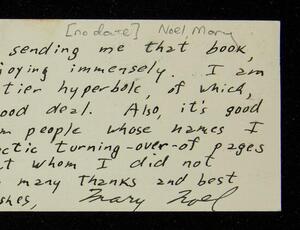 [no date] Noel, Mary
sending me that book,
joying immensely. I am
tier hyperbole, of which,
ood deal. Also, it's good
m people whose names I
ectic turning-over-of pages
t whom I did not
many thanks and best
shes, Mary Noel